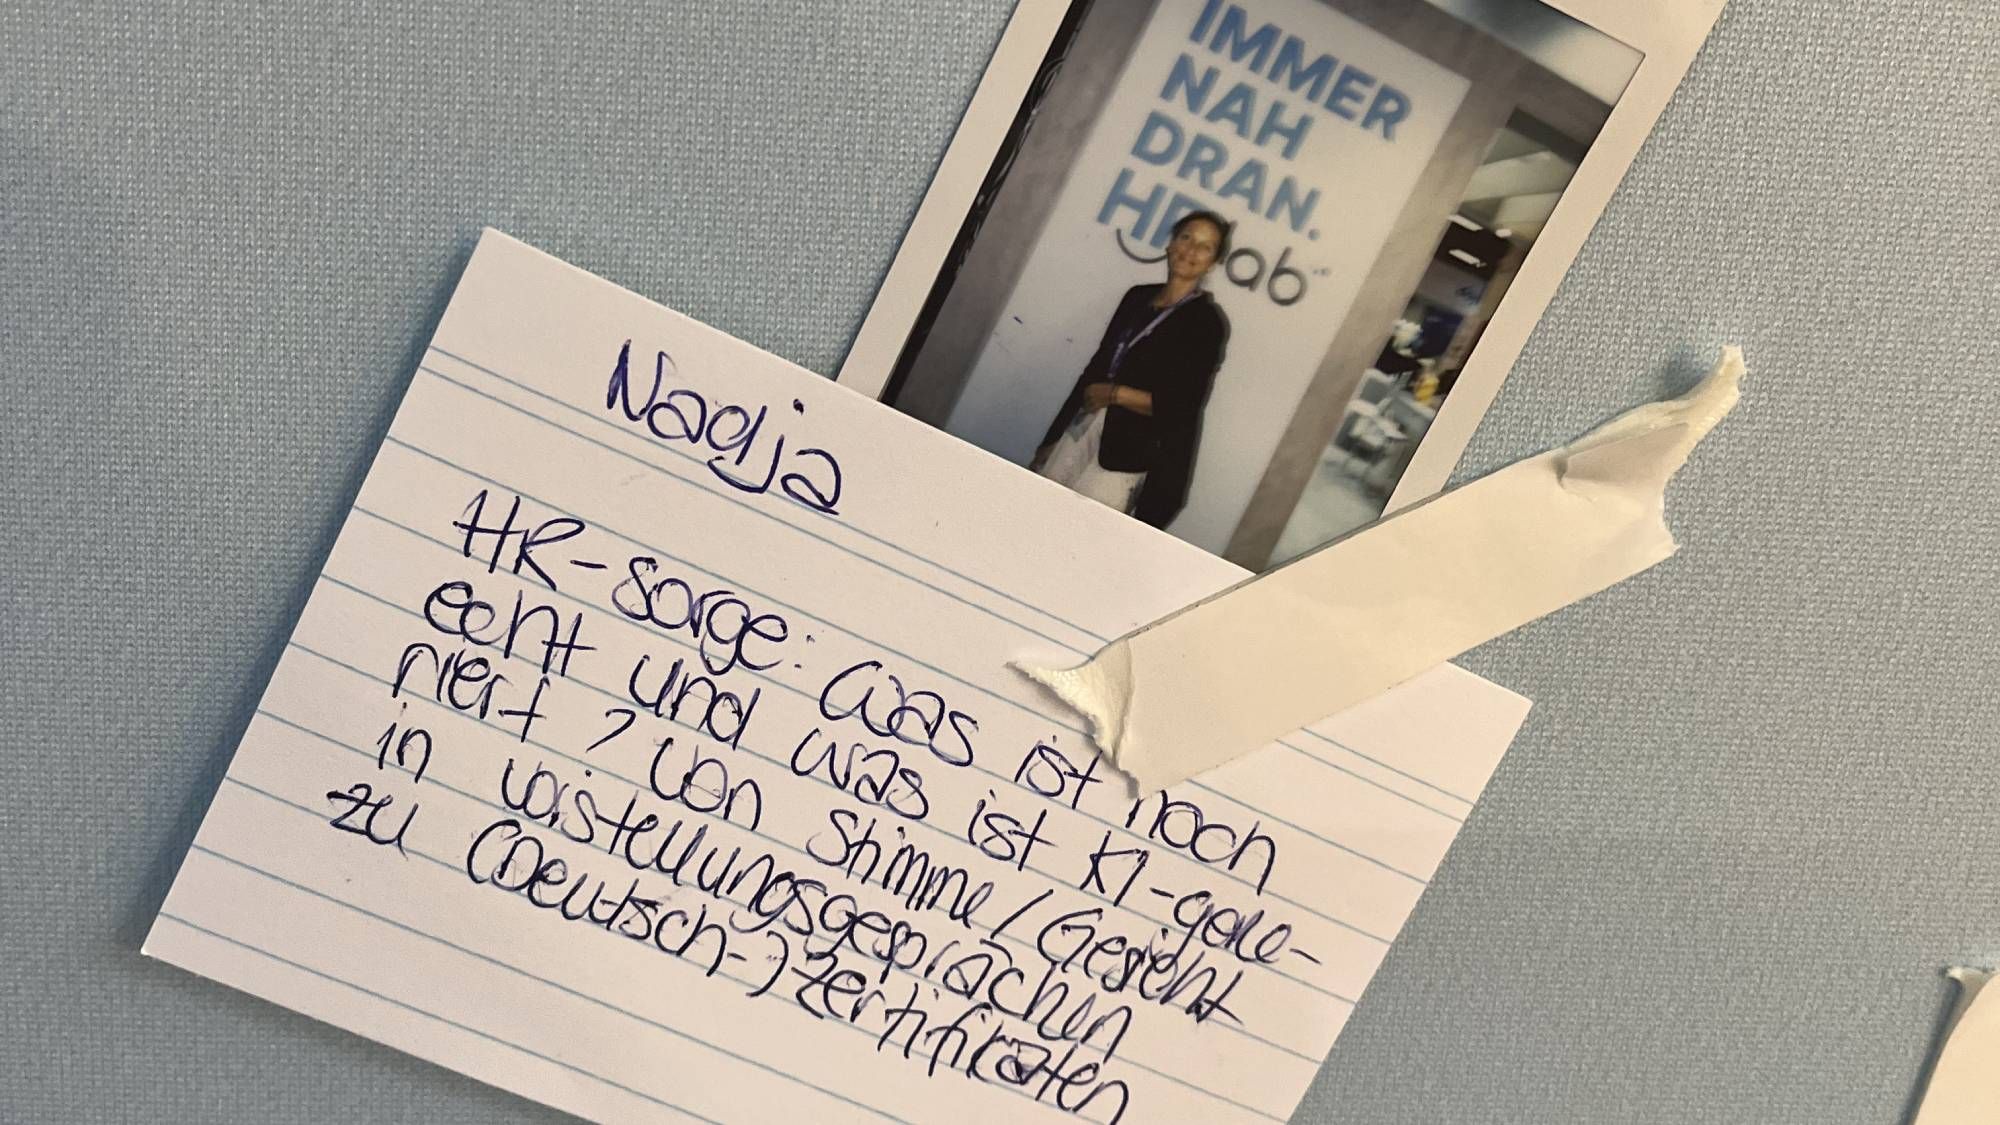 IMMER
NAH
DRAN.
HR lab
Nadja
HR-Sorge: was ist noch
echt und was ist KI-gene-
riert? von Stimme/Gesicht
in vorstellungsgesprächen
zu (Deutsch-)zertifikaten